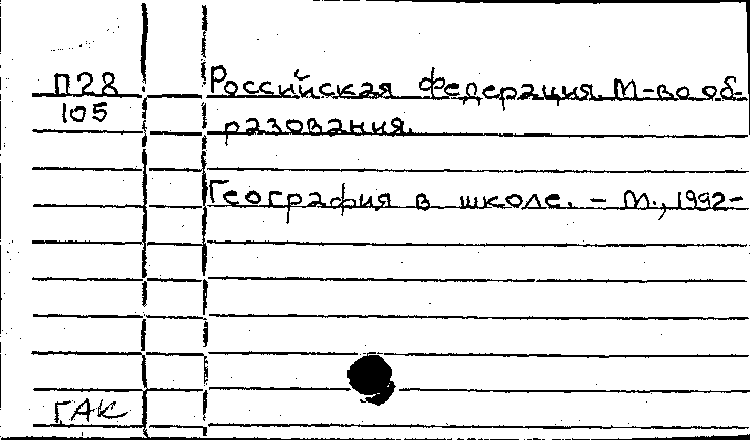 П28
105
Российская Федерация. М-во об-
разования.
География в школе. – М., 1992-
ГАК